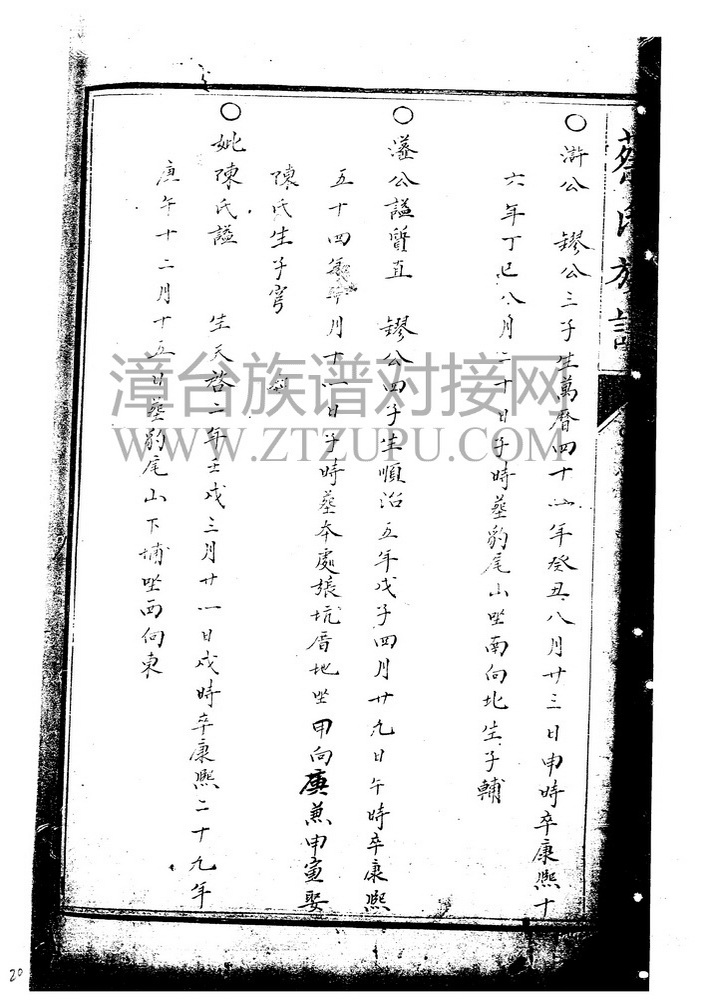 蔡氏族譜
○滸公 鏐公三子生萬曆四十一年癸丑八月廿三日申時卒康熙十
六年丁巳八月二十日子時葬豹尾山坐南向北生子輔
○藩公諡質直 鏐公四子生順治五年戊子四月廿九日午時卒康熙
五十四年 月十一日子時葬本處 坑厝地坐甲向庚兼申寅娶
陳氏生子穹
○妣陳氏諡 生天啓二年壬戌三月廿一日戌時卒康熙二十九年
庚午十二月十五日葬豹尾山下埔坐西向東
漳台族谱对接网
WWW.ZTZUPU.COM
20